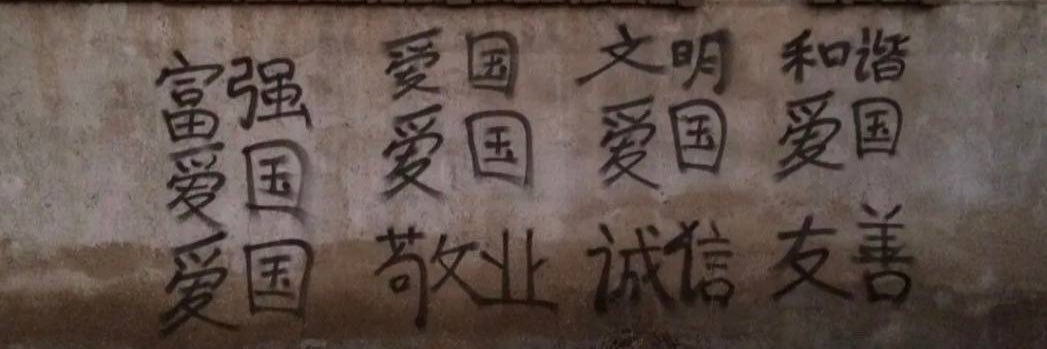 富强 爱国 文明 和谐
爱国 爱国 爱国 爱国
爱国 敬业 诚信 友善